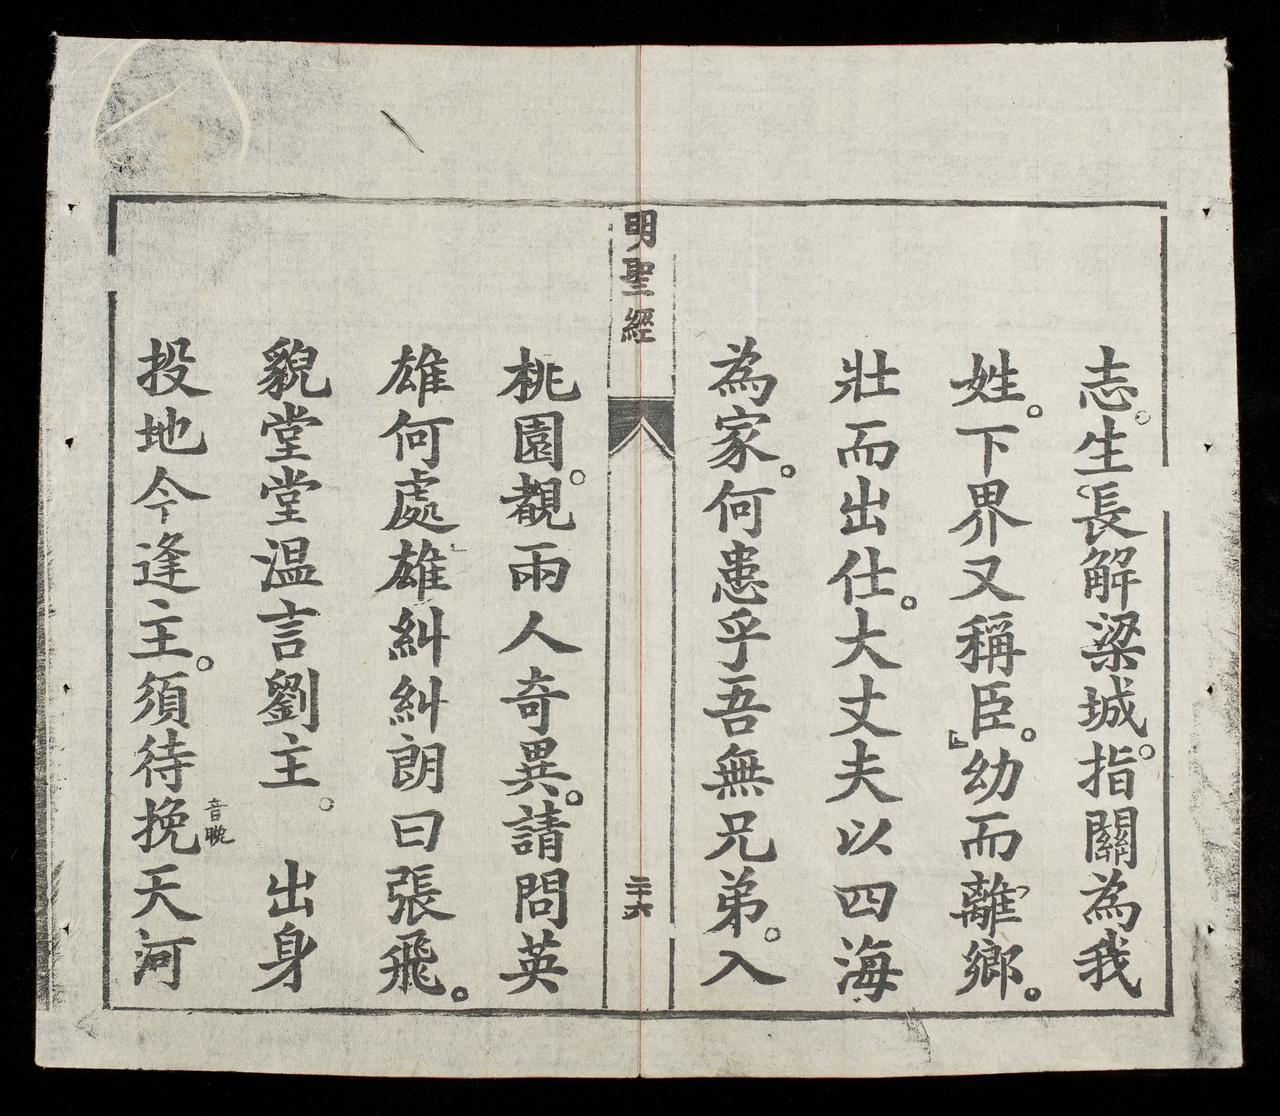 志。生長解梁城。指關為我
姓。下界又稱臣。』幼而離鄉。
壯而出仕。大丈夫以四海
為家。何患乎吾無兄弟。入
明聖經
二十六
桃園。覩兩人奇異。請問英
雄何處雄糾糾朗曰張飛。
貌堂堂溫言劉主。 出身
投地今逢主。須待挽天河
音晚